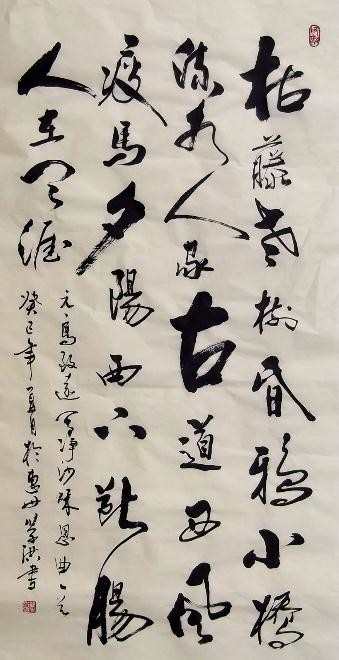 枯藤老樹昏鴉小橋
流水人家古道西風
瘦馬夕陽西下斷腸
人在天涯
元馬致遠天净沙秋思曲一首
癸巳年夏月於惠州洪書